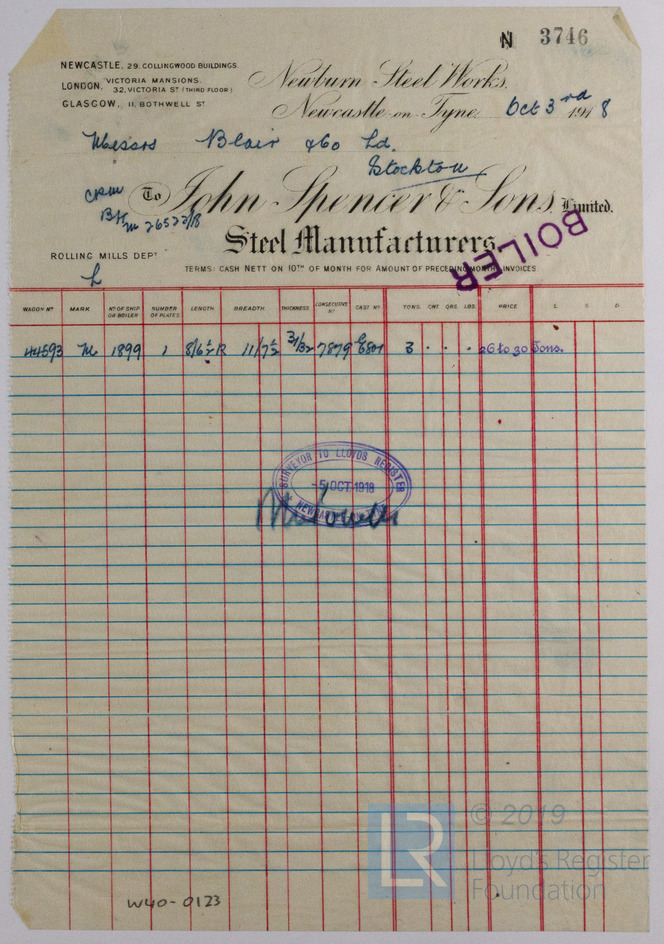 N 3746
NEWCASTLE, 29, COLLINGWOOD BUILDINGS.
LONDON, VICTORIA MANSIONS. 32, VICTORIA ST (THIRD FLOOR)
GLASGOW, 11, BOTHWELL ST.
Newburn Steel Works,
Newcastle-on-Tyne, Oct 3rd 1918
Messrs Blair & Co Ld.
Stockton
To John Spencer & Sons, Limited.
26522/18
Steel Manufacturers,
BOILER
ROLLING MILLS DEPT
TERMS: CASH NETT ON 10TH OF MONTH FOR AMOUNT OF PRECEDING MONTH INVOICES
WAGON No MARK No OF SHIP OR BOILER NUMBER OF PLATES LENGTH BREADTH THICKNESS CONSECUTIVE No CAST No TONS. CWT QRS. LBS. PRICE £ S. D.
44593 M 1899 1 8/6½ R 11/7½ 31/32 7879 6801 3 . . . 26 to 30 Tons.
SURVEYOR TO LLOYD'S REGISTER
-5 OCT 1918
© 2019
LR Lloyd's Register
Foundation
W40-0123